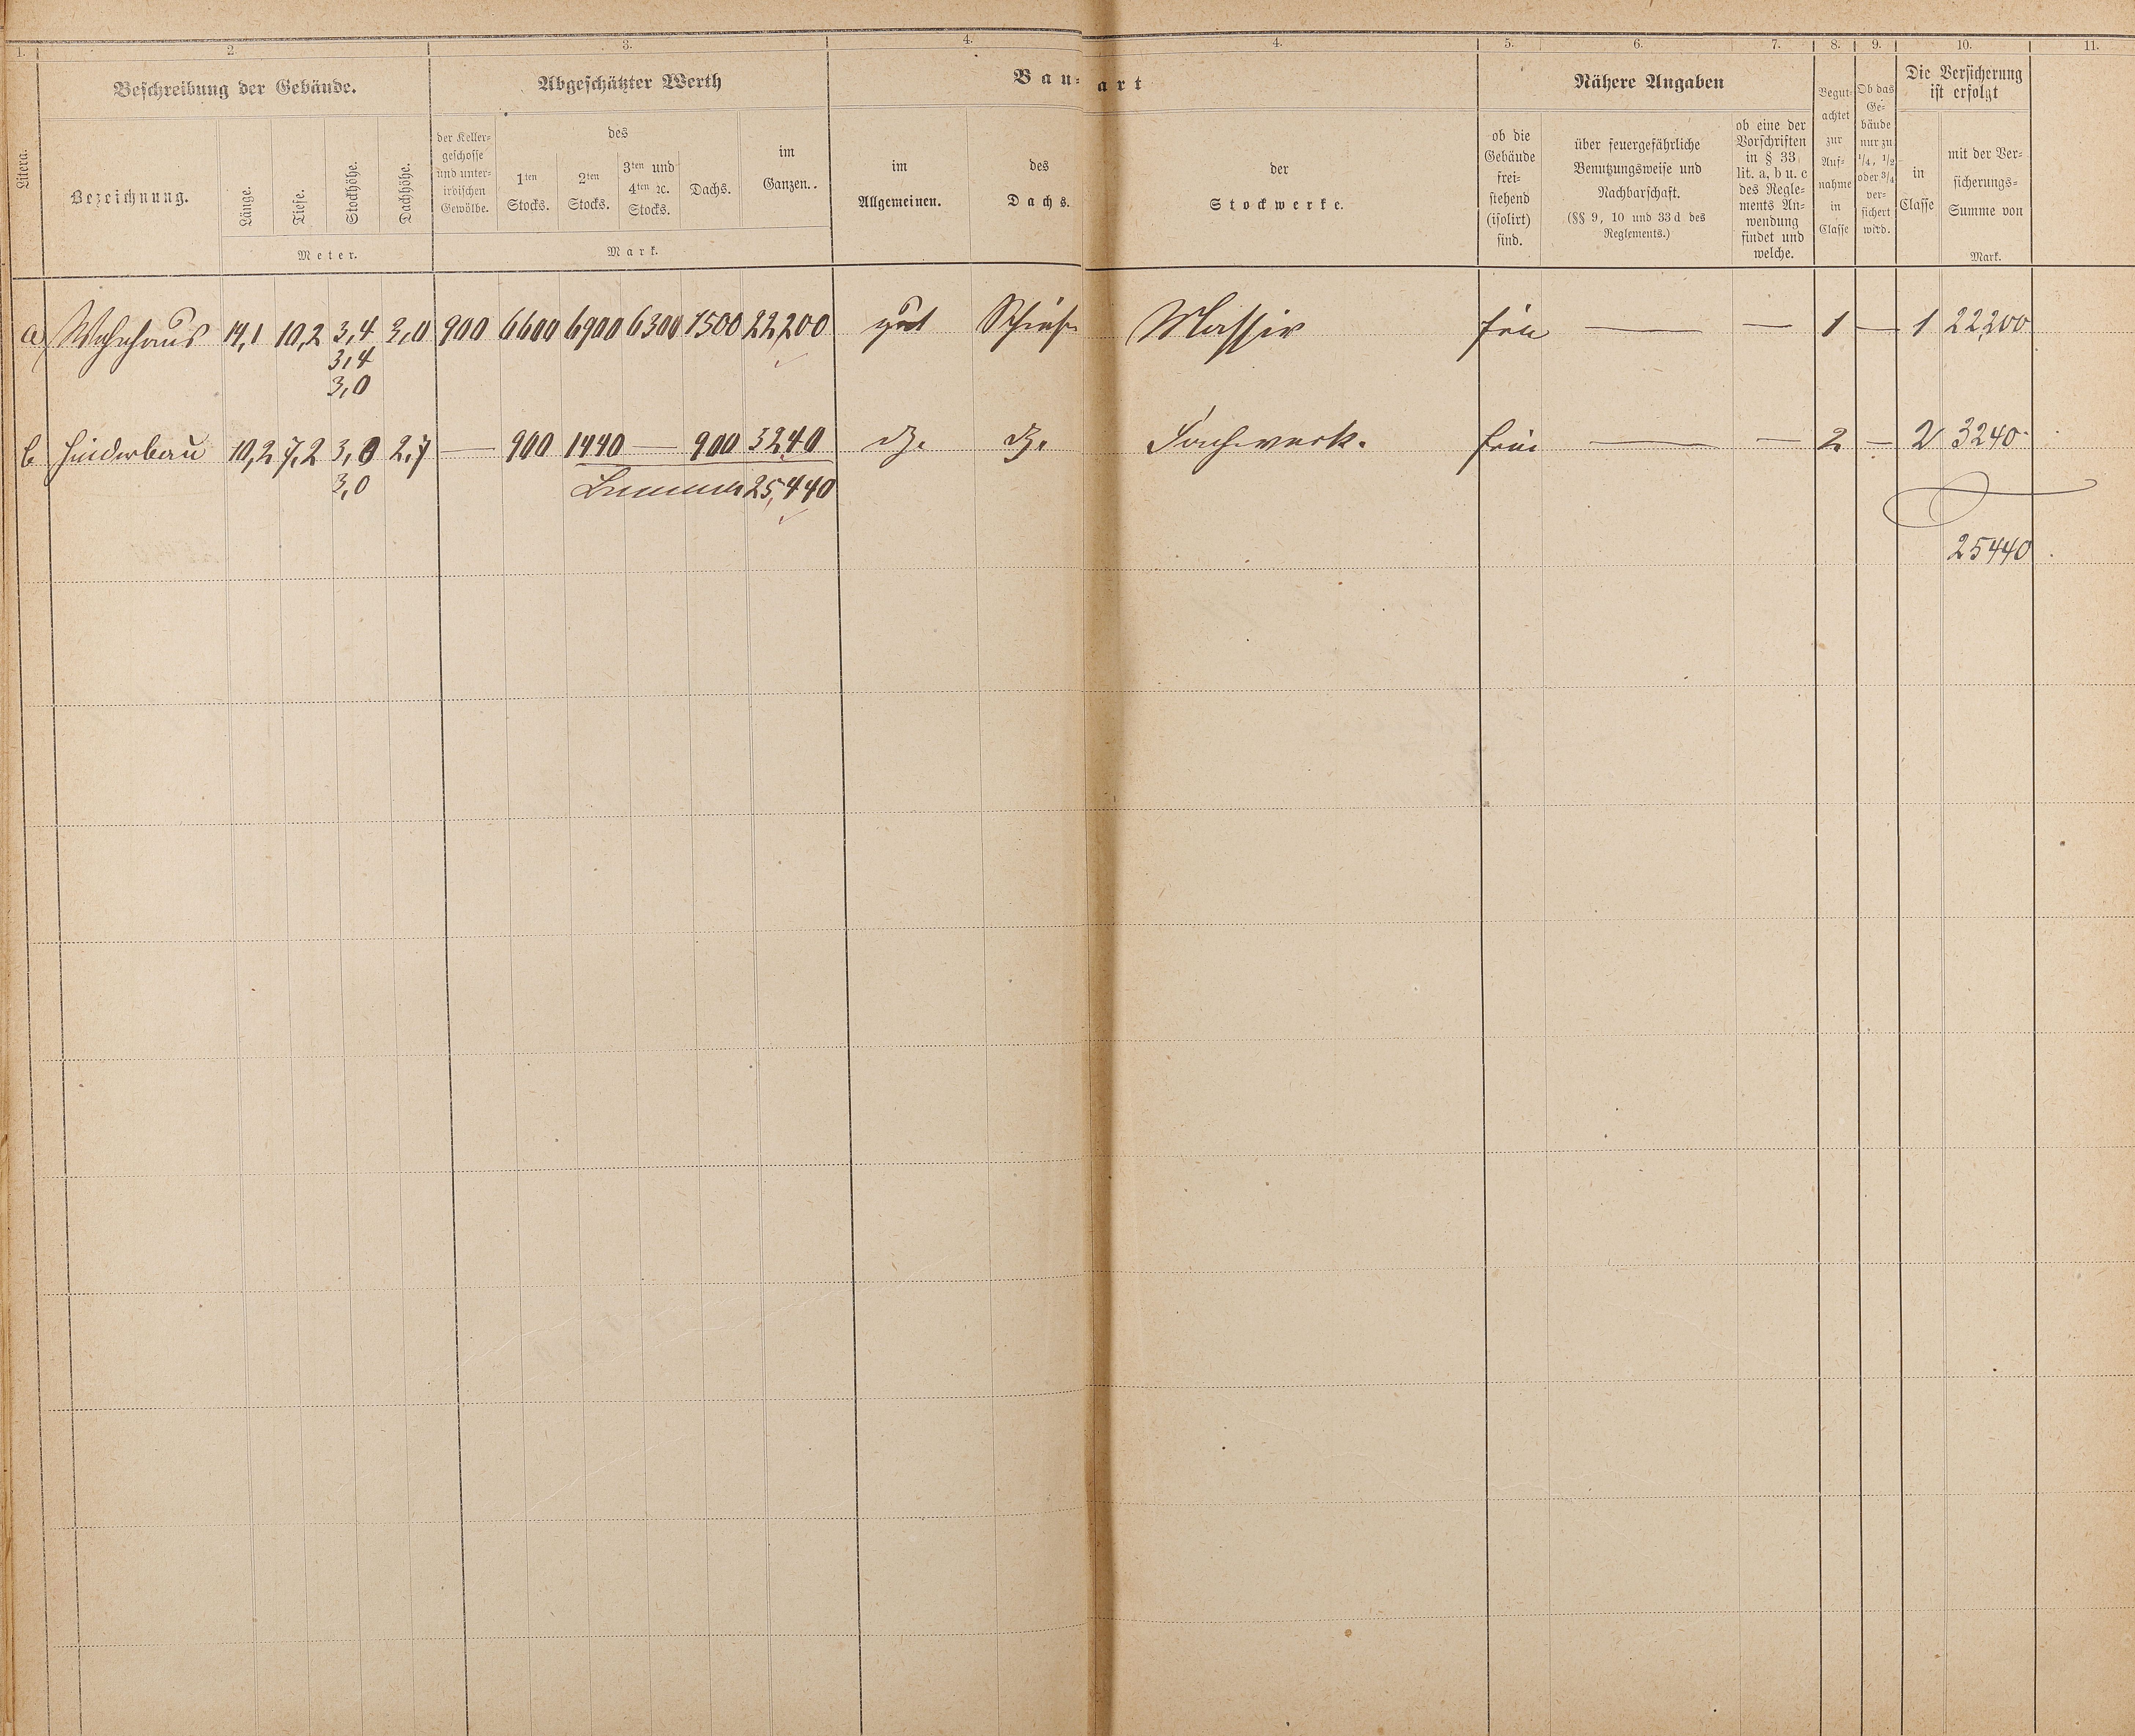 1. 2. 3. 4. 4. 5. 6. 7. 8. 9. 10. 11.
Litera.
Beschreibung der Gebäude.
Bezeichnung.
Länge.
Tiefe.
Stockhöhe.
Dachhöhe.
Meter.
Abgeschätzter Werth
der Keller-
geschosse
und unter-
irdischen
Gewölbe.
des
1ten
Stocks.
2ten
Stocks.
3ten und
4ten ꝛc.
Stocks.
Dachs.
im
Ganzen..
Mark.
Bau-art
im
Allgemeinen.
des
Dachs.
der
Stockwerke.
Nähere Angaben
ob die
Gebäude
frei-
stehend
(isolirt)
sind.
über feuergefährliche
Benutzungsweise und
Nachbarschaft.
(§§ 9, 10 und 33d des
Reglements.)
ob eine der
Vorschriften
in § 33
lit. a, b u. c
des Regle-
ments An-
wendung
findet und
welche.
Begut-
achtet
zur
Auf-
nahme
in
Classe
Ob das
Ge-
bäude
nur zu
1/4, 1/2
oder 3/4
ver-
sichert
wird.
Die Versicherung
ist erfolgt
in
Classe
mit der Ver-
sicherungs-
Summe von
Mark.
a) Wohnhaus 14,1 10,2 3,4 3,0 900 6600 6900 6300 1500 22,200 gut Schiefer Massiv frei — — 1 — 1 22,200
3,4
3,0
b Hinderbau 10,2 7,2 3,0 2,7 — 900 1440 — 900 3240 do. do. Fachwerk. frei — — 2 — 2 3240
3,0
Summa 25,440
25440